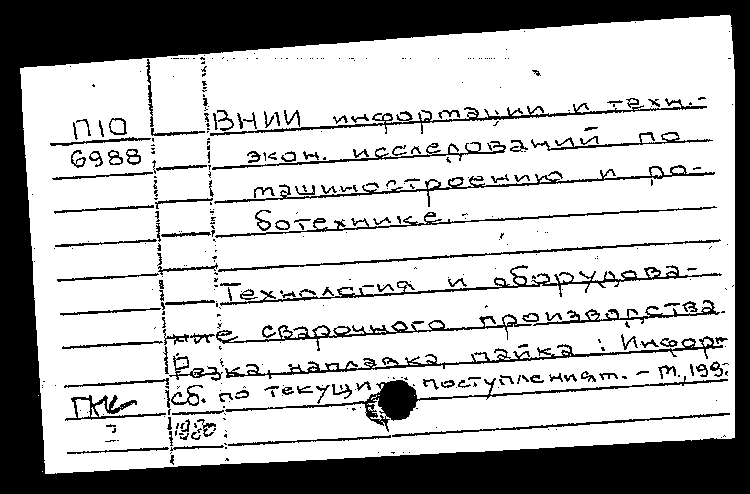 П10 ВНИИ информации и техн.-
6988 экон. исследований по
машиностроению и ро-
ботехнике.-
Технология и оборудова-
ние сварочного производства
Резка, наплавка, пайка : Информ
сб. по текущим поступлениям. – М., 199.
1980